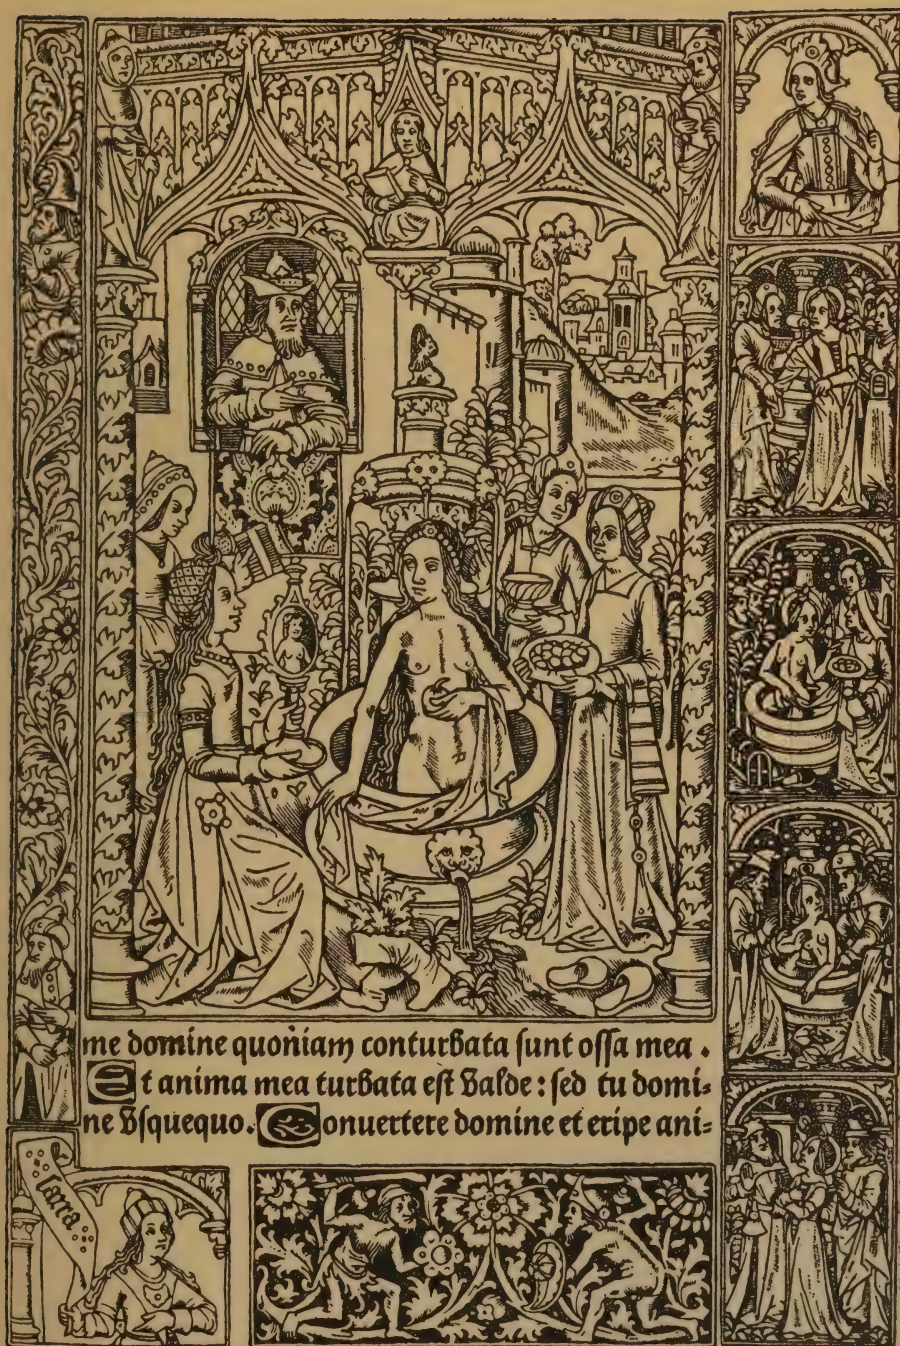 me domine quoniam conturbata sunt ossa mea .
Et anima mea turbata est valde : sed tu domi=
ne vsquequo. Conuertere domine et eripe ani=